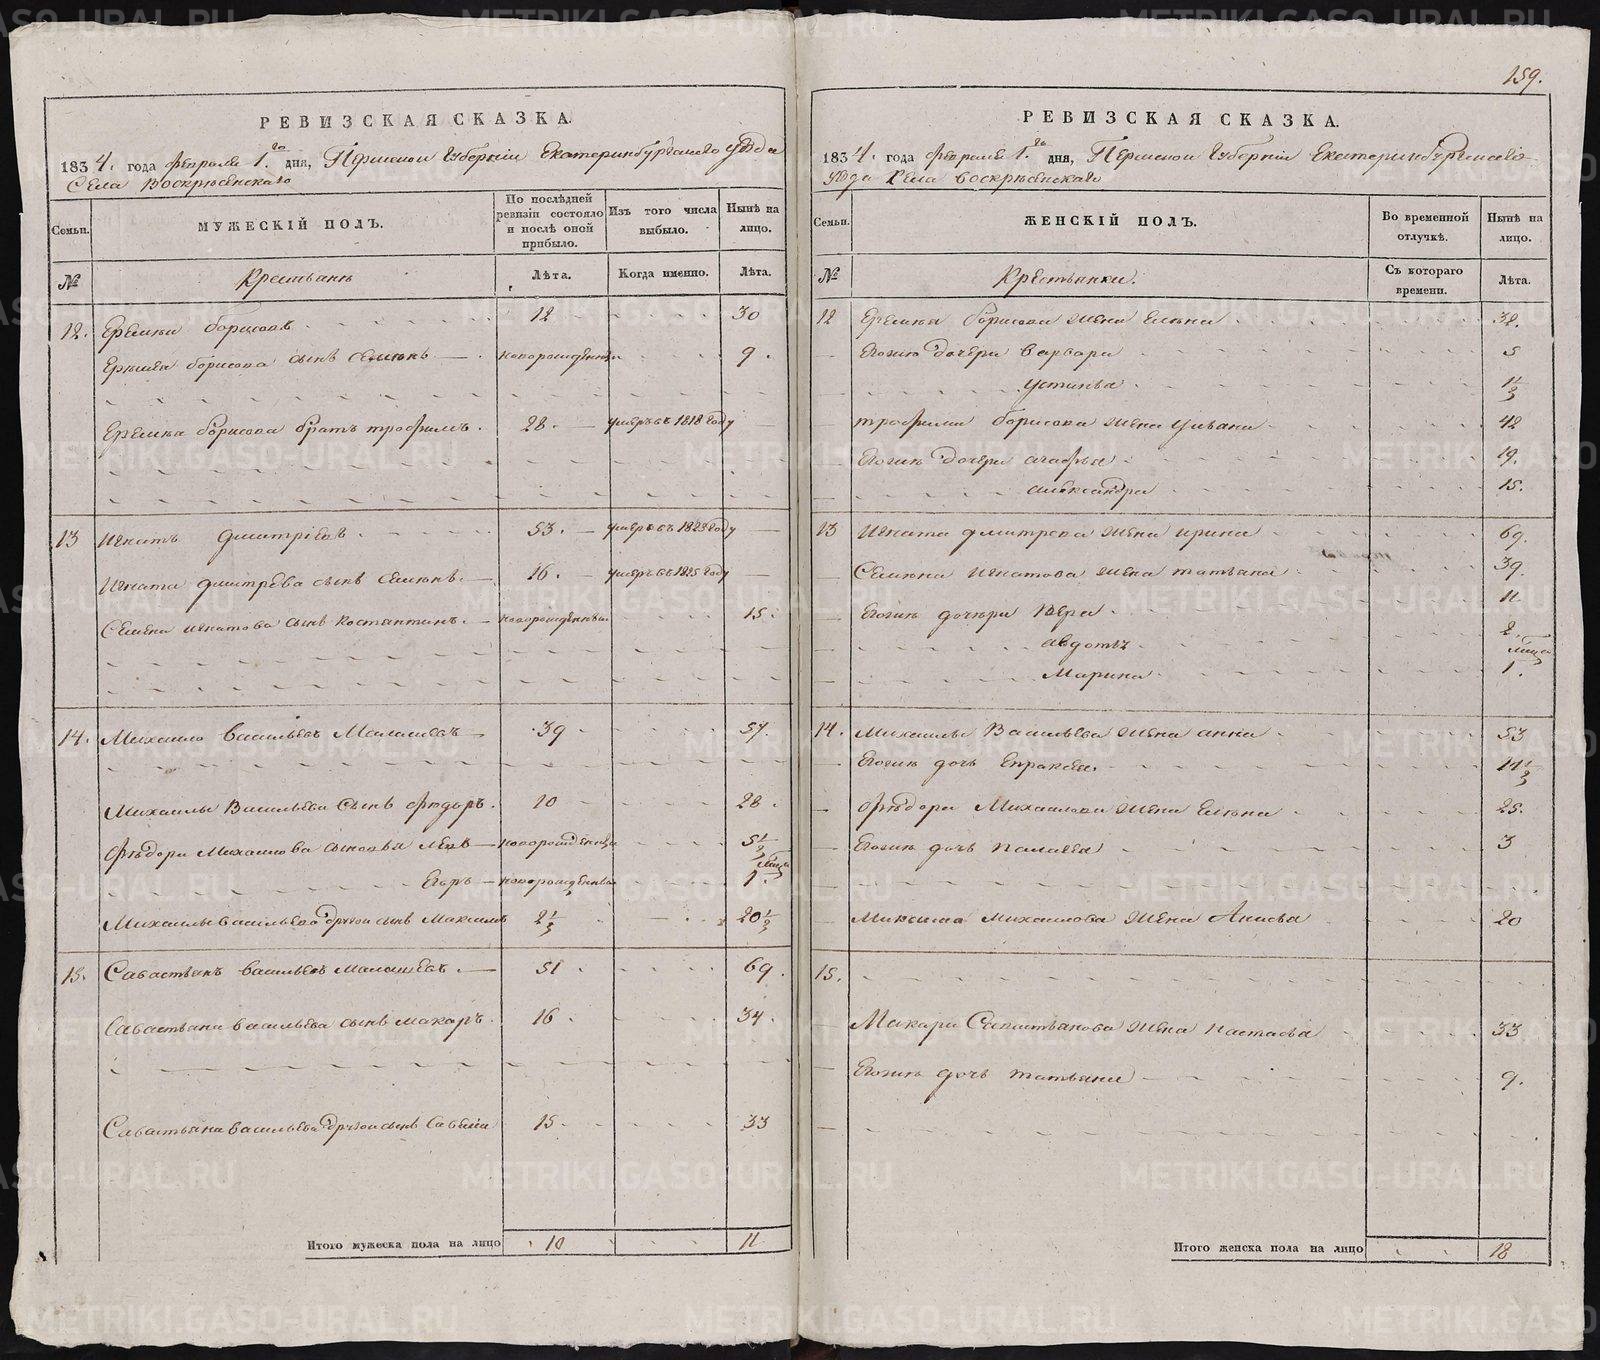 159.
РЕВИЗСКАЯ СКАЗКА.
1834. года февраля 1.го дня, Пермской Губерніи Екатеринбургскаго уѣзда
Села Воскресенскаго
Семьи. МУЖЕСКІЙ ПОЛЪ. По послѣдней ревизіи состояло и послѣ оной прибыло. Изъ того числа выбыло. Нынѣ на лицо.
№ Крестьянѣ Лѣта. Когда именно. Лѣта.
12. Еремѣй Борисовъ 12 30
Еремѣя Борисова сынъ Семионъ новорожденный 9.
Еремѣя Борисова братъ трофимъ. 28. умеръ въ 1818 году
13 Игнатъ Дмитріевъ 53. умеръ въ 1823 году
Игната Дмитрева сынъ Семенъ. 16. умеръ въ 1825 году
Семена игнатова сынъ костантинъ. новорожденный 15.
14. Михаило Васильевъ Малышевъ 39 57.
Михаилы Васильева Сынъ федоръ. 10 28.
Федора Михаилова сыновья новорожденный 5 1/2
Егоръ новорожденный 1.
Михаилы васильева другой сынъ Максимъ 2 1/2 20 1/2
15. Савастьянъ васильевъ малышевъ. 51 69.
Савастьяна васильева сынъ макаръ. 16 34.
Савастьяна васильева другой сынъ 15 33
Итого мужеска пола на лицо 10 11
РЕВИЗСКАЯ СКАЗКА.
1834. года февраля 1.го дня, Пермской Губерніи Екатеринбургскаго
уѣзда Села воскресенскаго
Семьи. ЖЕНСКІЙ ПОЛЪ. Во временной отлучкѣ. Нынѣ на лицо.
№ Крестьянки. Съ котораго времени. Лѣта.
12 Еремѣя борисова жена Елѣна 32.
Егожъ дочери варвара 5
устинья 1 1/2
трофима борисова жена ульяна 42
Егожъ дочери агафья 19.
александра 15.
13 Игната дмитрева жена ирина 69.
Семиона игнатова жена татьяна 39.
Егожъ дочери Вера 11
авдотья 2.
Марина 1.
14. Михаилы Васильева жена анна 53
Егожъ дочь Епраксея. 11 1/2
Федора Михаилова жена Елѣна 25.
Егожъ дочь пелагея 3
Максима михаилова жена Анисья 20
15.
Макара Савастьянова жена настасья 33
Егожъ дочь татьяна 9.
Итого женска пола на лицо 18
METRIKI.GASO-URAL.RU